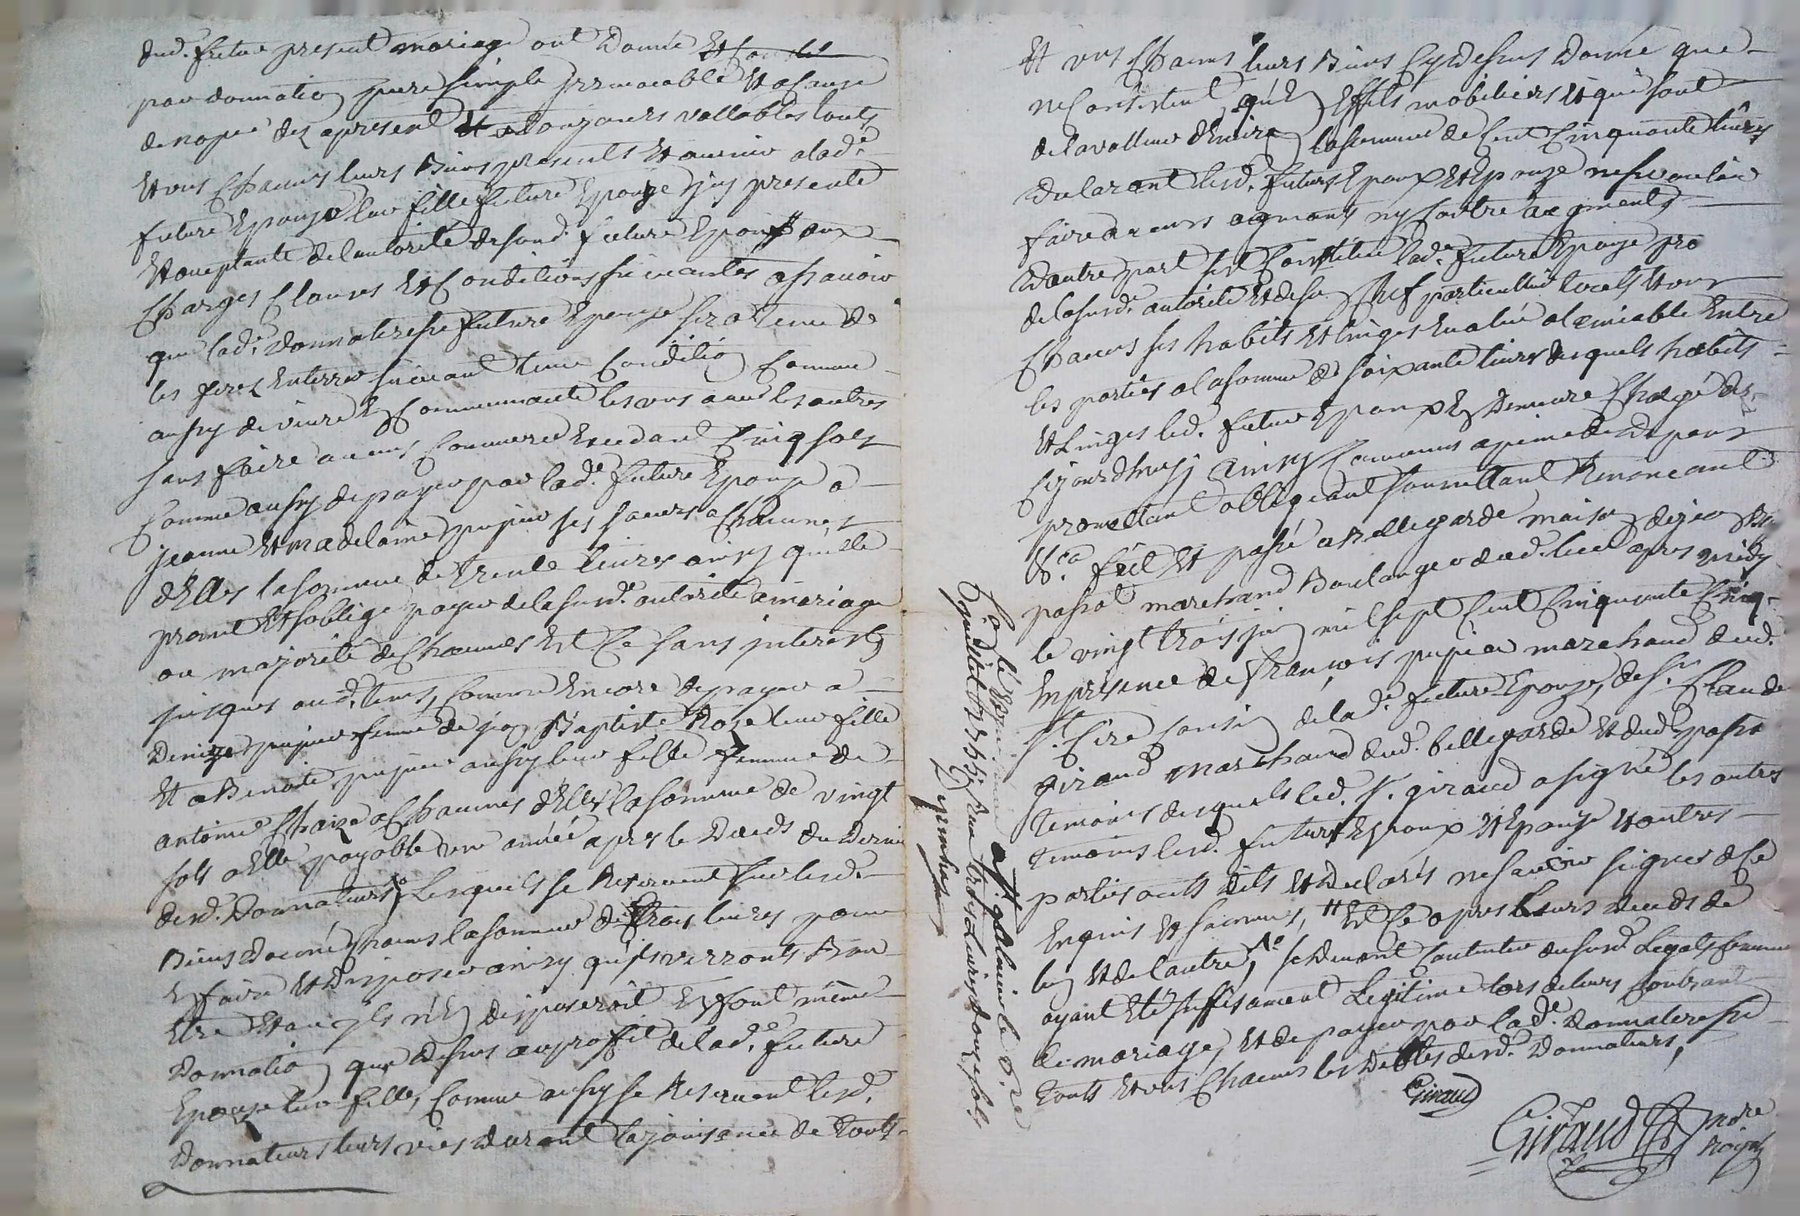 dud. futur present mariage ont donné
par donnation pure simple irrevocable et a cause
de nopce des apresent et a toujours vallables touts
et uns chacuns leurs biens presents et avenir a lad.e
future Epouze leur fille future Epouze icy presente
et aceptante de l'autorité desond. futur Epoux aux
charges clauses et conditions suivantes assavoir
que lad.e donnateresse future Epouze sera tenue de
les
aussy de vivre En communauté les uns avec les autres
sans faire aucun commerce Excedant cinq sols
comme aussy de payer par lad.e future Epouze a
jeanne et madelaine pupier ses sœurs a chacunes
d'Elles la somme de trente livres ainsy qu'elle
promet et soblige payer de lasusd.e autorité a mariage
ou majorité de chacunes et ce sans interests
jusques aud. tems, comme Encore de payer a
Denize pupier femme de jean Baptiste Roze leur fille
et a Benoite pupier aussy leur fille femme de
antoine Chaize a chacunes d'Elles la somme de vingt
sols a Elle payable une année apres le deceds du dernier
desd. donnateurs, lesquels se reservent sur lesd.
Biens donnés chacuns la somme de trois livres pour
En faire et disposer ainsy qu'ils verronts bon
Etre et au cas ils n'En disposeroit En font même
donnation que dessus au proffit de lad.e future
Epouze leur fille, comme aussy se reservent lesd.
donnateurs leurs vies durant la jouisance de touts
et uns chacuns leurs biens cy dessus donné que
ne consistent qu'En Effets mobiliers et qui sont
de la valleur d'Environ la somme de cent cinquante livres
declarant lesd. futurs Epoux et Epouze ne se vouloir
faire aucuns augments ny contre augments
d'autre part s'est constitué lad.e future Epouze pro
de lasusd.e autorité et de son chef particullier touts et uns
chacuns ses habits et linges Evalué al'amiable Entre
les parties a la somme de soixante livres desquels habits
et linges led. futur Epoux En demeure chargé dez
cejourdhuy, ainsy convenus a peine de depans
promettant obligeant soumettant Renoncant
&.ca fait et passé a Bellegarde maison de jean B.te
passot marchand Boulanger dud. lieu apres midy
le vingt trois juin mil sept cent cinquante cinq
En presence de françois pupier marchand dud.
S.t Cire cousin de lad.e future Epouze, de S.r Claude
giraud marchand dud. bellegarde et dud. passot
temoins desquels led. S.r giraud a signé les autres
temoins lesd. futurs Epoux et Epouze et autres
parties onts dits et declarés ne savoir signer de ce
Enquis et sommés, et ce apres leurs deceds de
lun et de l'autre, se devant contenter du susd. legats comme
ayant Eté suffisament legitimé lors de leurs contract
de mariage, et de payer par lad.e donnateresse
touts et uns chacuns les debtes desd. donnateurs,
Giraud
Giraud Nore
Royal